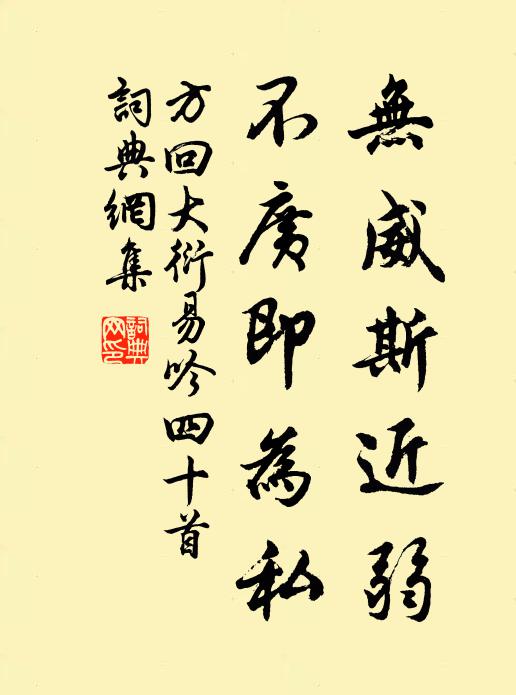 無威斯近弱
不廣即為私
方回大衍易吟四十首
詞典網集
詞典網印